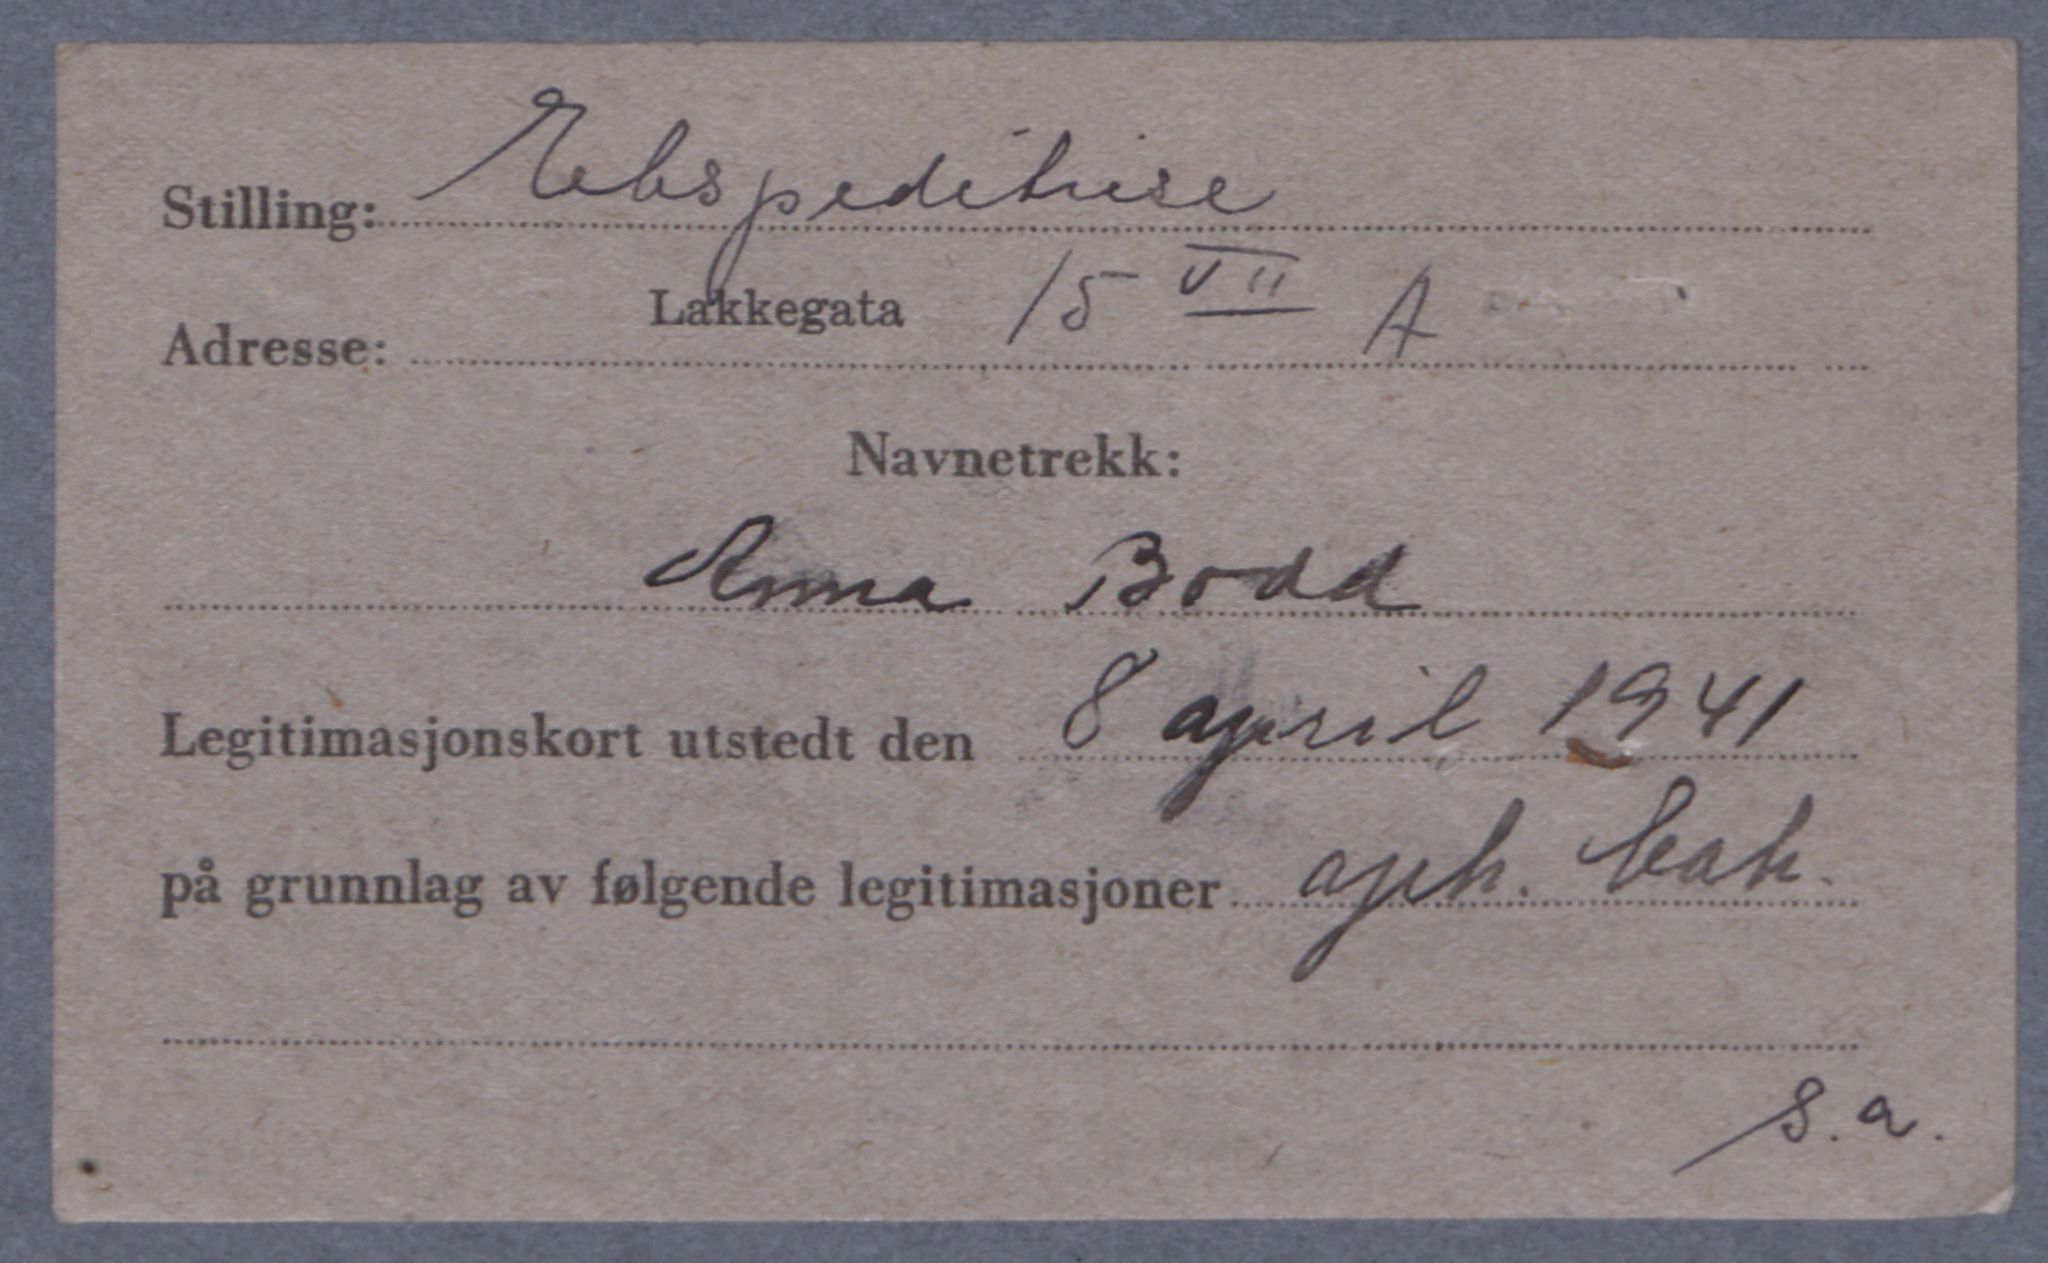 Stilling: Ekspeditrise
Adresse: Lakkegata 15 VII A
Navnetrekk:
Anna Bodd
Legitimasjonskort utstedt den 8 april 1941
på grunnlag av følgende legitimasjoner
s.a.